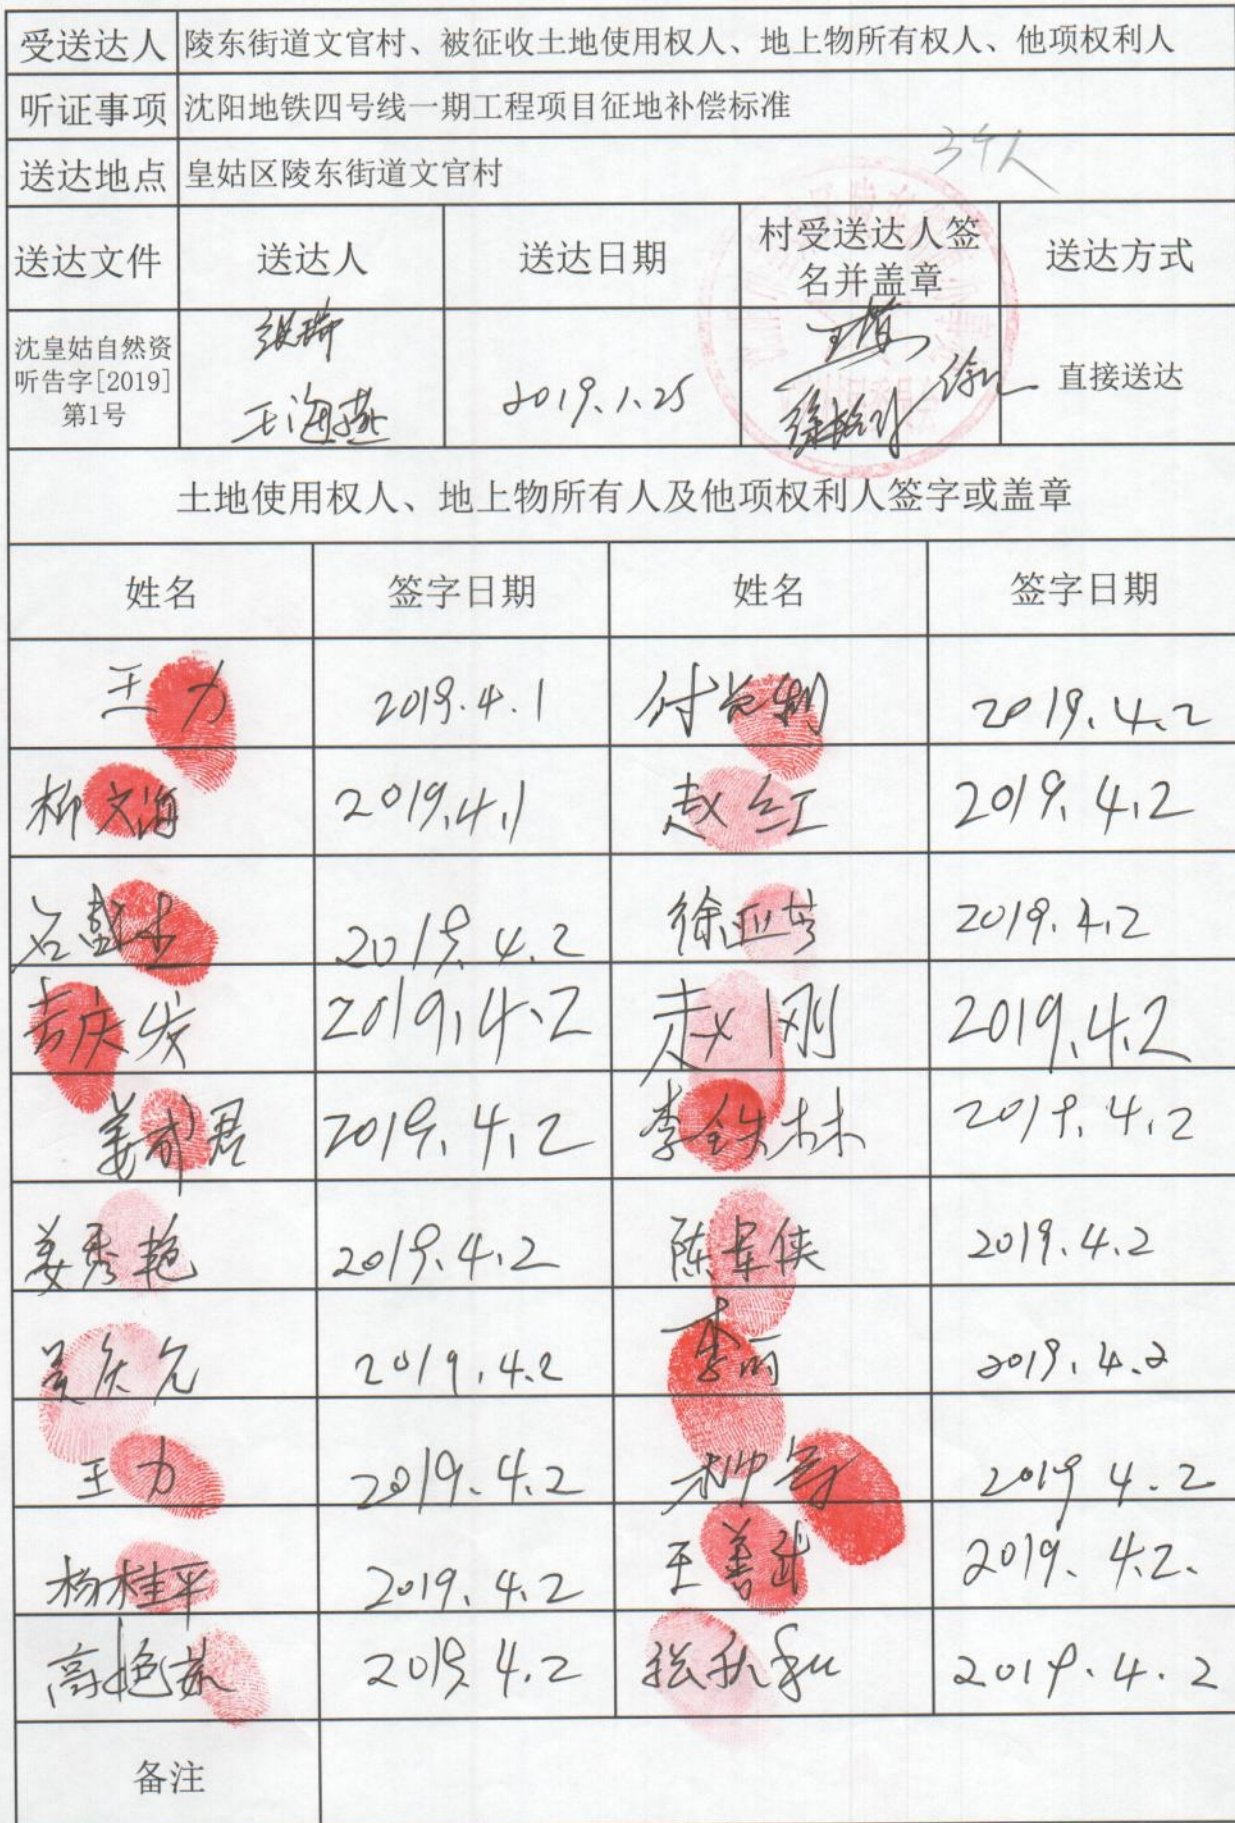 受送达人 陵东街道文官村、被征收土地使用权人、地上物所有权人、他项权利人
听证事项 沈阳地铁四号线一期工程项目征地补偿标准
3个人
送达地点 皇姑区陵东街道文官村
送达文件 送达人 送达日期 村受送达人签名并盖章 送达方式
沈皇姑自然资听告字[2019]第1号
王海燕
2019.1.25
直接送达
土地使用权人、地上物所有人及他项权利人签字或盖章
姓名 签字日期 姓名 签字日期
王力 2019.4.1 2019.4.2
柳文海 2019.4.1 赵红 2019.4.2
2019.4.2 徐亚芬 2019.4.2
2019.4.2 赵刚 2019.4.2
姜成君 2019.4.2 李铁林 2019.4.2
姜秀艳 2019.4.2 陈军侠 2019.4.2
2019.4.2 李丽 2019.4.2
王力 2019.4.2 2019 4.2
杨桂平 2019.4.2 王善武 2019.4.2.
2019.4.2 2019.4.2
备注